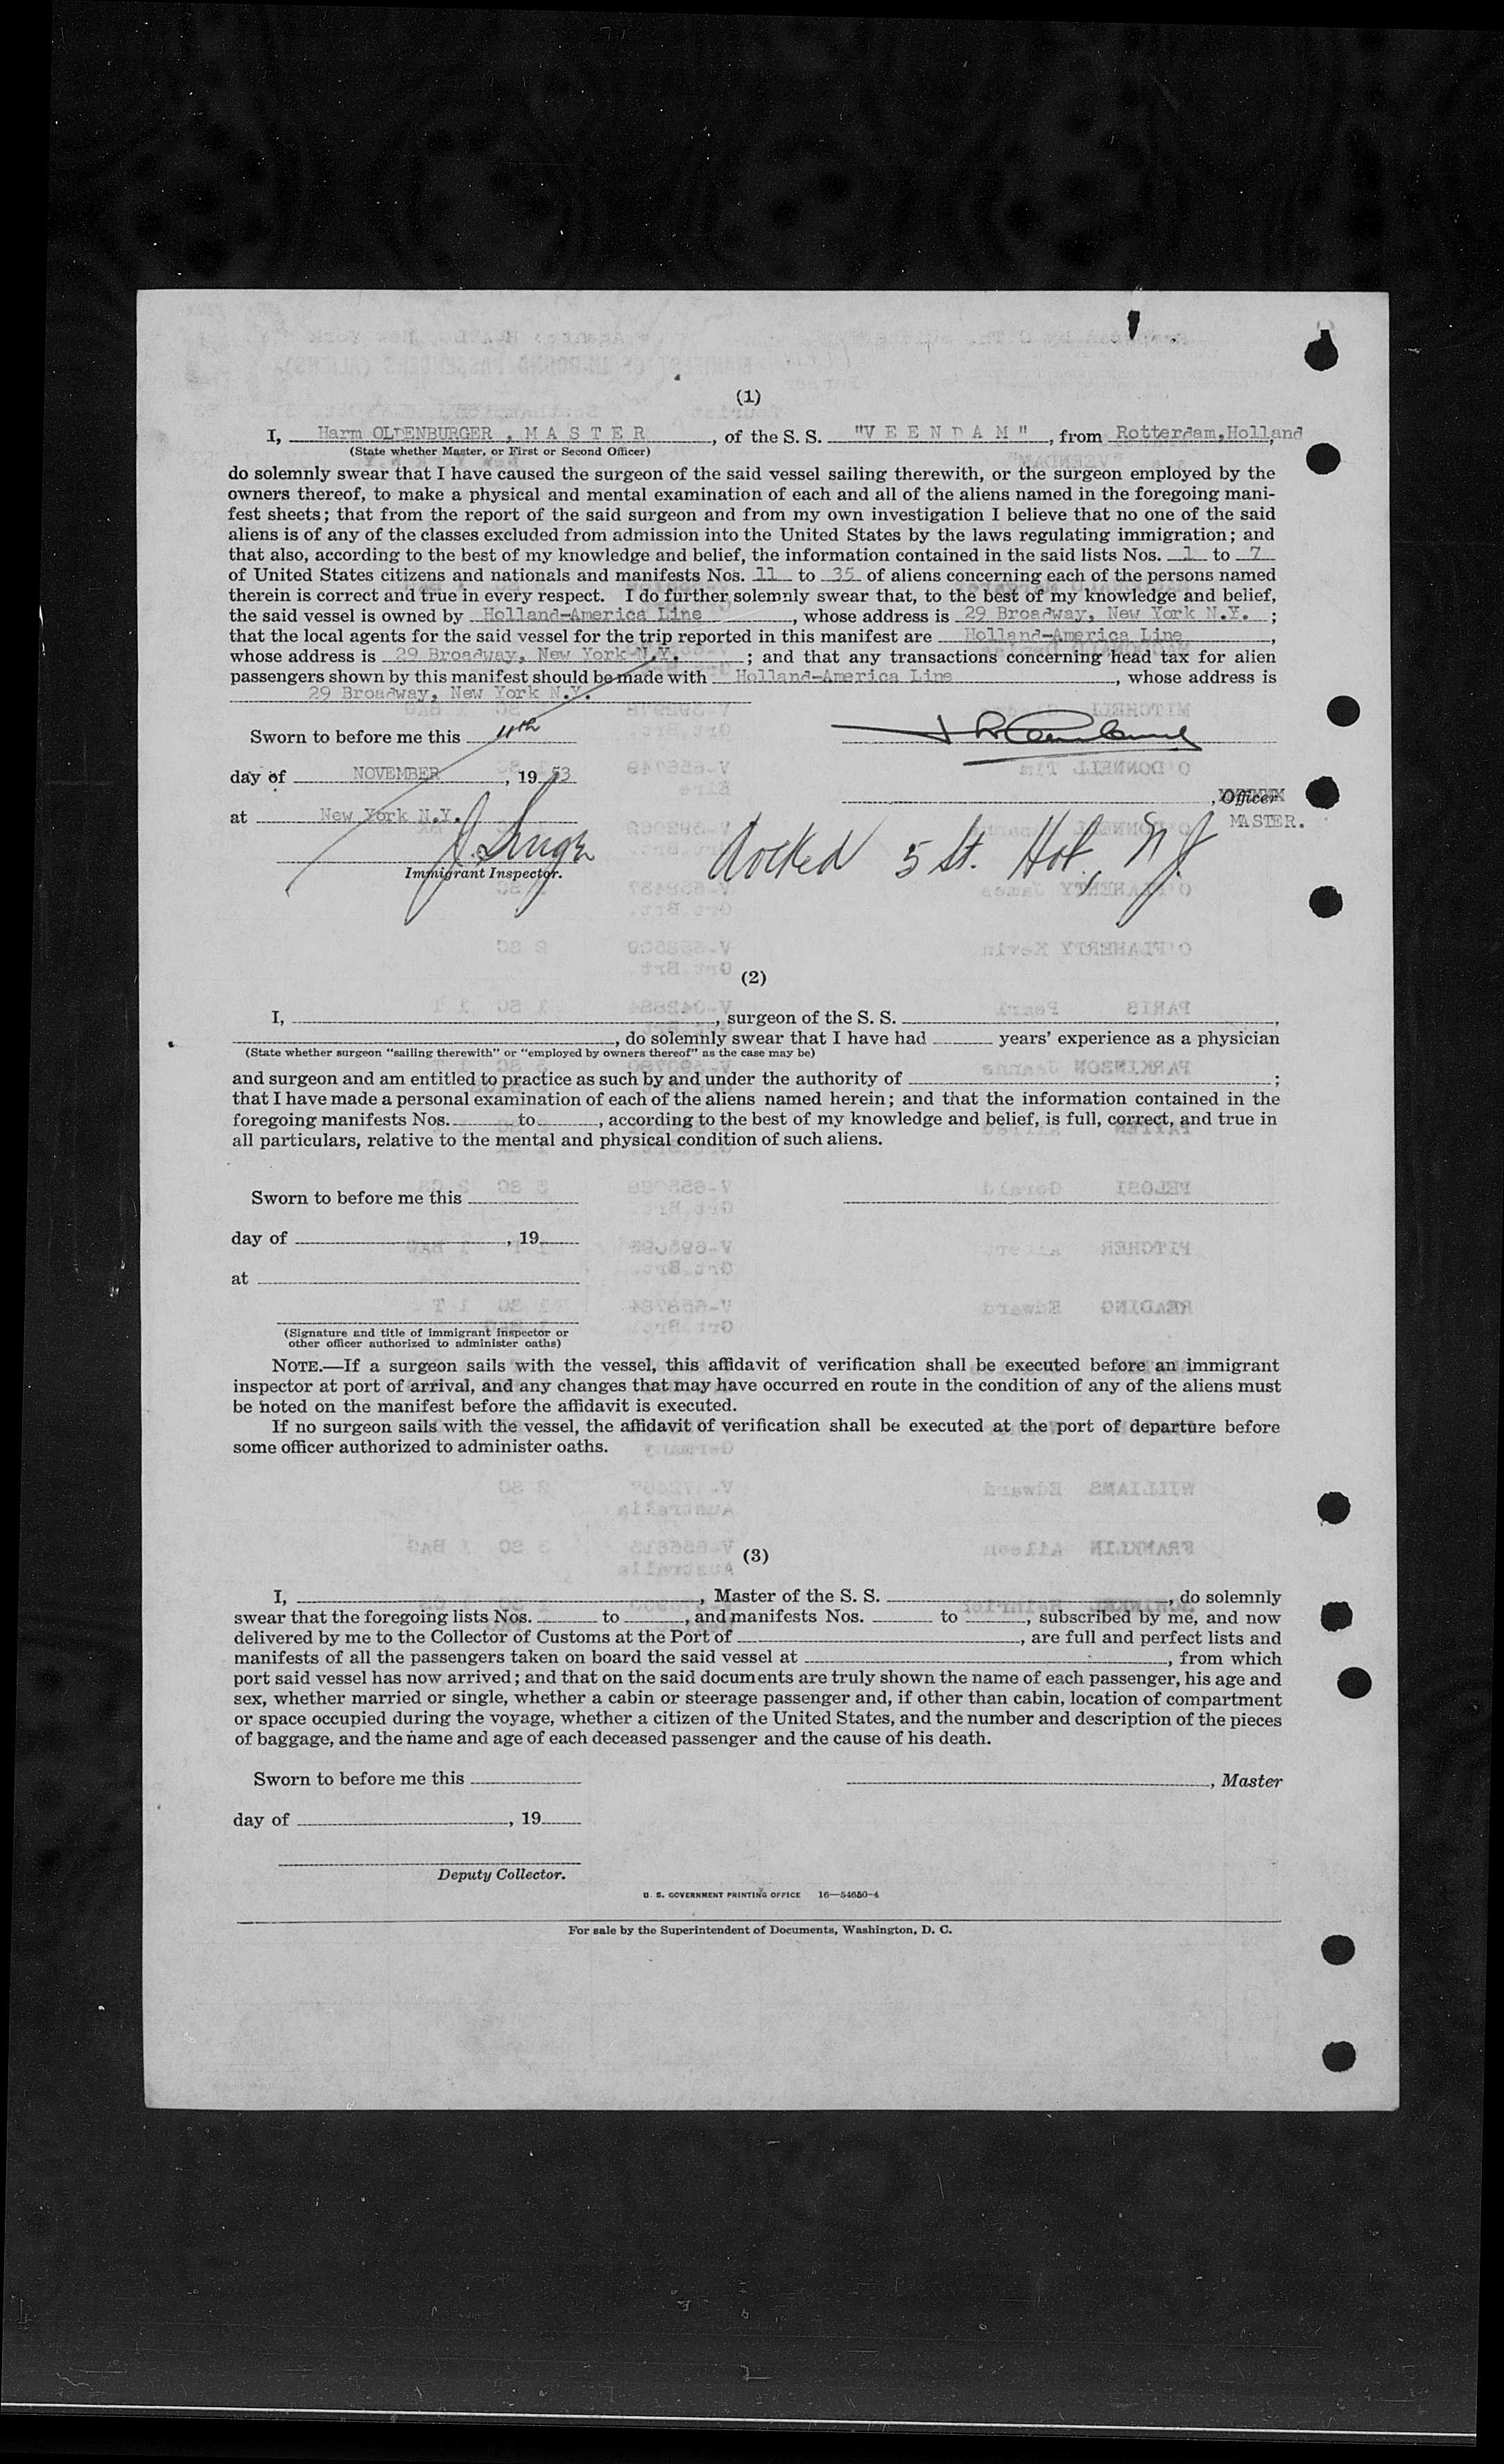 (1)
I, Harm OLDENBURGER , M A S T E R , of the S. S. "V E E N D A M" , from Rotterdam,Holland,
(State whether Master, or First or Second Officer)
do solemnly swear that I have caused the surgeon of the said vessel sailing therewith, or the surgeon employed by the
owners thereof, to make a physical and mental examination of each and all of the aliens named in the foregoing mani-
fest sheets; that from the report of the said surgeon and from my own investigation I believe that no one of the said
aliens is of any of the classes excluded from admission into the United States by the laws regulating immigration; and
that also, according to the best of my knowledge and belief, the information contained in the said lists Nos. 1 to 7
of United States citizens and nationals and manifests Nos. 11 to 35 of aliens concerning each of the persons named
therein is correct and true in every respect. I do further solemnly swear that, to the best of my knowledge and belief,
the said vessel is owned by Holland-America Line , whose address is 29 Broadway, New York N.Y. ;
that the local agents for the said vessel for the trip reported in this manifest are Holland-America Line ,
whose address is 29 Broadway, New York N.Y. ; and that any transactions concerning head tax for alien
passengers shown by this manifest should be made with Holland-America Line , whose address is
29 Broadway, New York N.Y.
Sworn to before me this 11th
day of NOVEMBER , 19 53
, Officer
at New York N.Y.
MASTER.
docked 5 St. Hob, N J.
Immigrant Inspector.
(2)
I, , surgeon of the S. S. ,
, do solemnly swear that I have had years' experience as a physician
(State whether surgeon "sailing therewith" or "employed by owners thereof" as the case may be)
and surgeon and am entitled to practice as such by and under the authority of ;
that I have made a personal examination of each of the aliens named herein; and that the information contained in the
foregoing manifests Nos. to , according to the best of my knowledge and belief, is full, correct, and true in
all particulars, relative to the mental and physical condition of such aliens.
Sworn to before me this
day of , 19
at
(Signature and title of immigrant inspector or
other officer authorized to administer oaths)
NOTE.—If a surgeon sails with the vessel, this affidavit of verification shall be executed before an immigrant
inspector at port of arrival, and any changes that may have occurred en route in the condition of any of the aliens must
be noted on the manifest before the affidavit is executed.
If no surgeon sails with the vessel, the affidavit of verification shall be executed at the port of departure before
some officer authorized to administer oaths.
(3)
I, , Master of the S. S. , do solemnly
swear that the foregoing lists Nos. to , and manifests Nos. to , subscribed by me, and now
delivered by me to the Collector of Customs at the Port of , are full and perfect lists and
manifests of all the passengers taken on board the said vessel at , from which
port said vessel has now arrived; and that on the said documents are truly shown the name of each passenger, his age and
sex, whether married or single, whether a cabin or steerage passenger and, if other than cabin, location of compartment
or space occupied during the voyage, whether a citizen of the United States, and the number and description of the pieces
of baggage, and the name and age of each deceased passenger and the cause of his death.
Sworn to before me this
, Master
day of , 19
Deputy Collector.
U. S. GOVERNMENT PRINTING OFFICE 16—54650-4
For sale by the Superintendent of Documents, Washington, D. C.